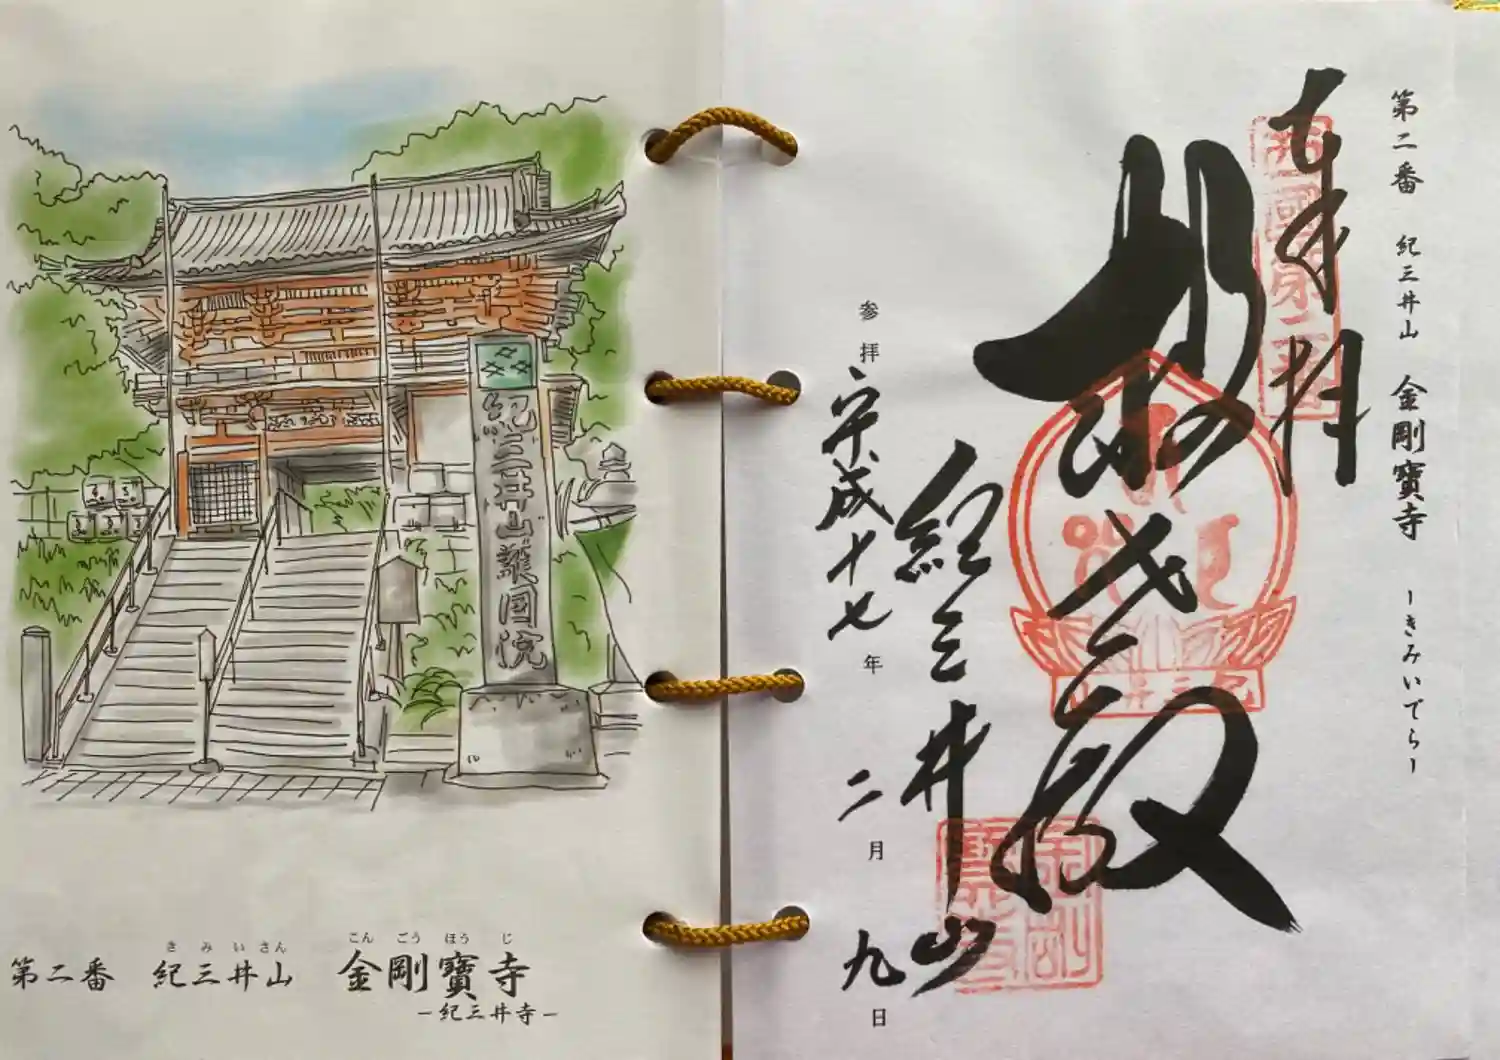 紀三井山護国院
きみいさん こんごうほうじ
第二番 紀三井山 金剛寶寺
－紀三井寺－
第二番 紀三井山 金剛寶寺 ーきみいでらー
奉拝
救世殿
紀三井山
参拝 平成十七年 二月 九日